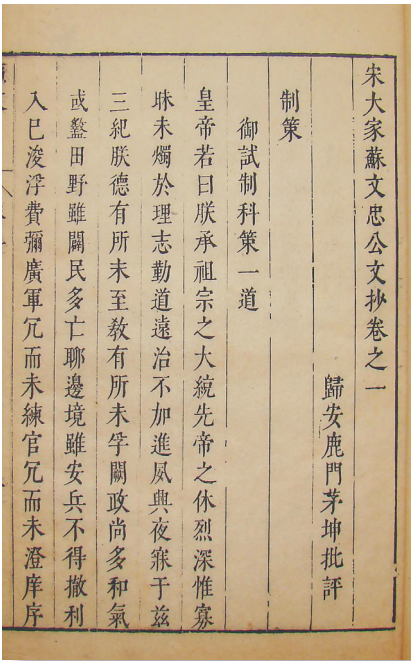 宋大家蘇文忠公文抄卷之一
歸安鹿門茅坤批評
制策
御試制科策一道
皇帝若曰朕承祖宗之大統先帝之休烈深惟寡
昧未燭於理志勤道遠治不加進夙興夜寐于茲
三紀朕德有所未至敎有所未孚闕政尚多和氣
或盭田野雖闢民多亡聊邊境雖安兵不得撤利
入已浚浮費彌廣軍冗而未練官冗而未澄庠序